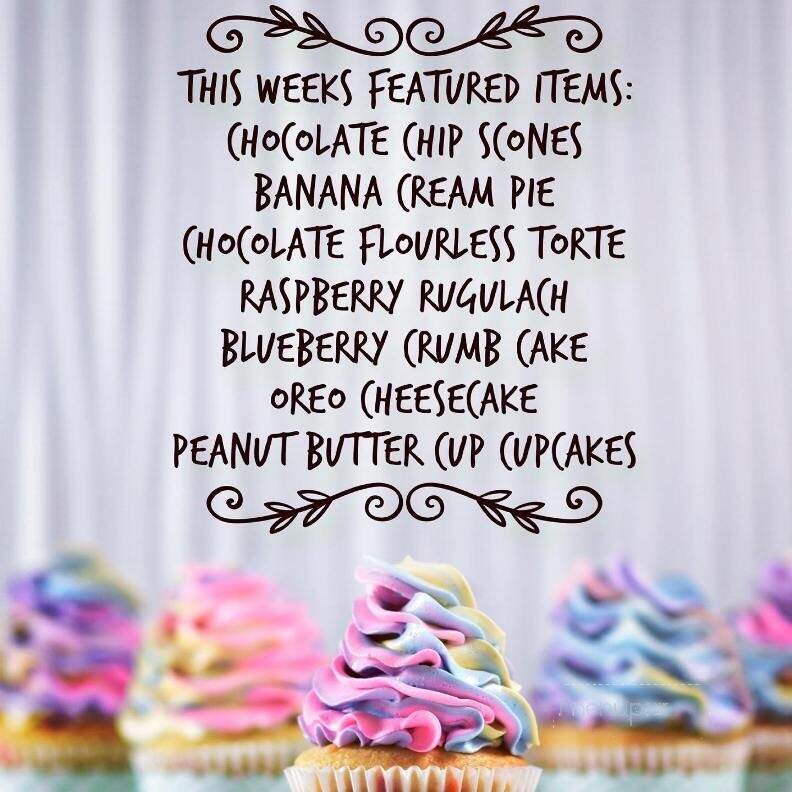 THIS WEEKS FEATURED ITEMS:
CHOCOLATE CHIP SCONES
BANANA CREAM PIE
CHOCOLATE FLOURLESS TORTE
RASPBERRY RUGULACH
BLUEBERRY CRUMB CAKE
OREO CHEESECAKE
PEANUT BUTTER CUP CUPCAKES